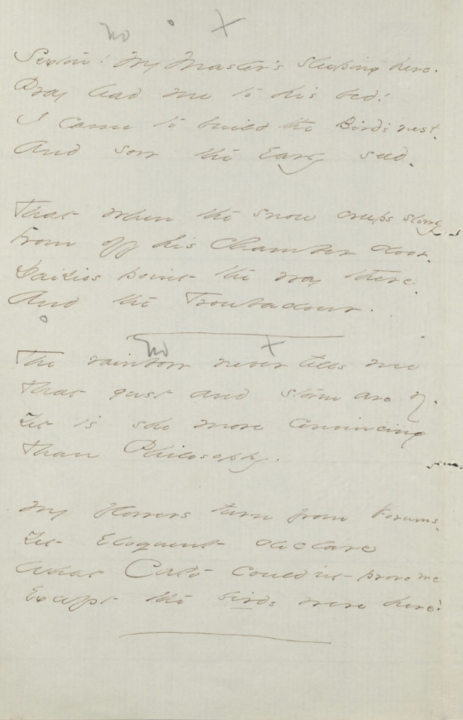 no x
Sexton! My Master's sleeping here.
Pray lead me to his bed!
I came to build the Bird's nest,
And sow the Early seed.
That when the snow creeps slowly
From off his chamber door.
Daisies point the way there.
And the Troubadour.
no x
The rainbow never tells me
that gust and storm are by.
Yet is she more convincing
than Philosophy.
My flowers turn from Forums.
Yet Eloquent declare
What Cato couldn't prove me
Except the birds were here!